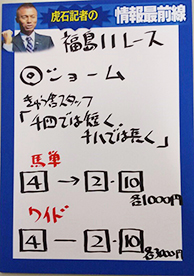 虎石記者の 情報最前線
福島11レース
◎ジョーム
きゅう舎スタッフ
「千四では短く、
千八では長く」
馬単
4 → 2・10
各1000円
ワイド
4 ― 2・10
各3000円